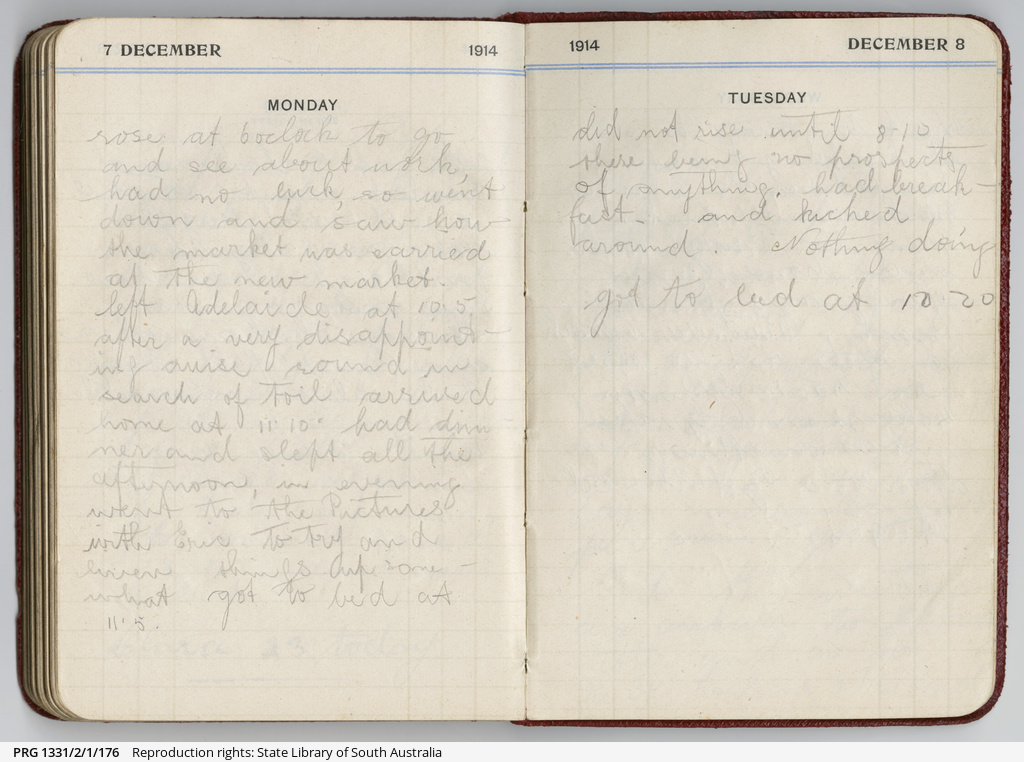 7 DECEMBER 1914
MONDAY
rose at 6oclock to go
and see about work,
had no luck, so went
down and saw how
the market was carried
at the new market.
left Adelaide at 10.5
after a very disappoint-
ing cruise round in
search of toil arrived
home at 11.10 had din-
ner and slept all the
afternoon, in evening
went to the Pictures
with Eric to try and
liven things up some-
what got to bed at
11.5.
23 today
1914 DECEMBER 8
TUESDAY
did not rise until 8-10
there being no prospects
of anything. had break-
fast. and kicked
around. Nothing doing
got to bed at 10 20
PRG 1331/2/1/176 Reproduction rights: State Library of South Australia